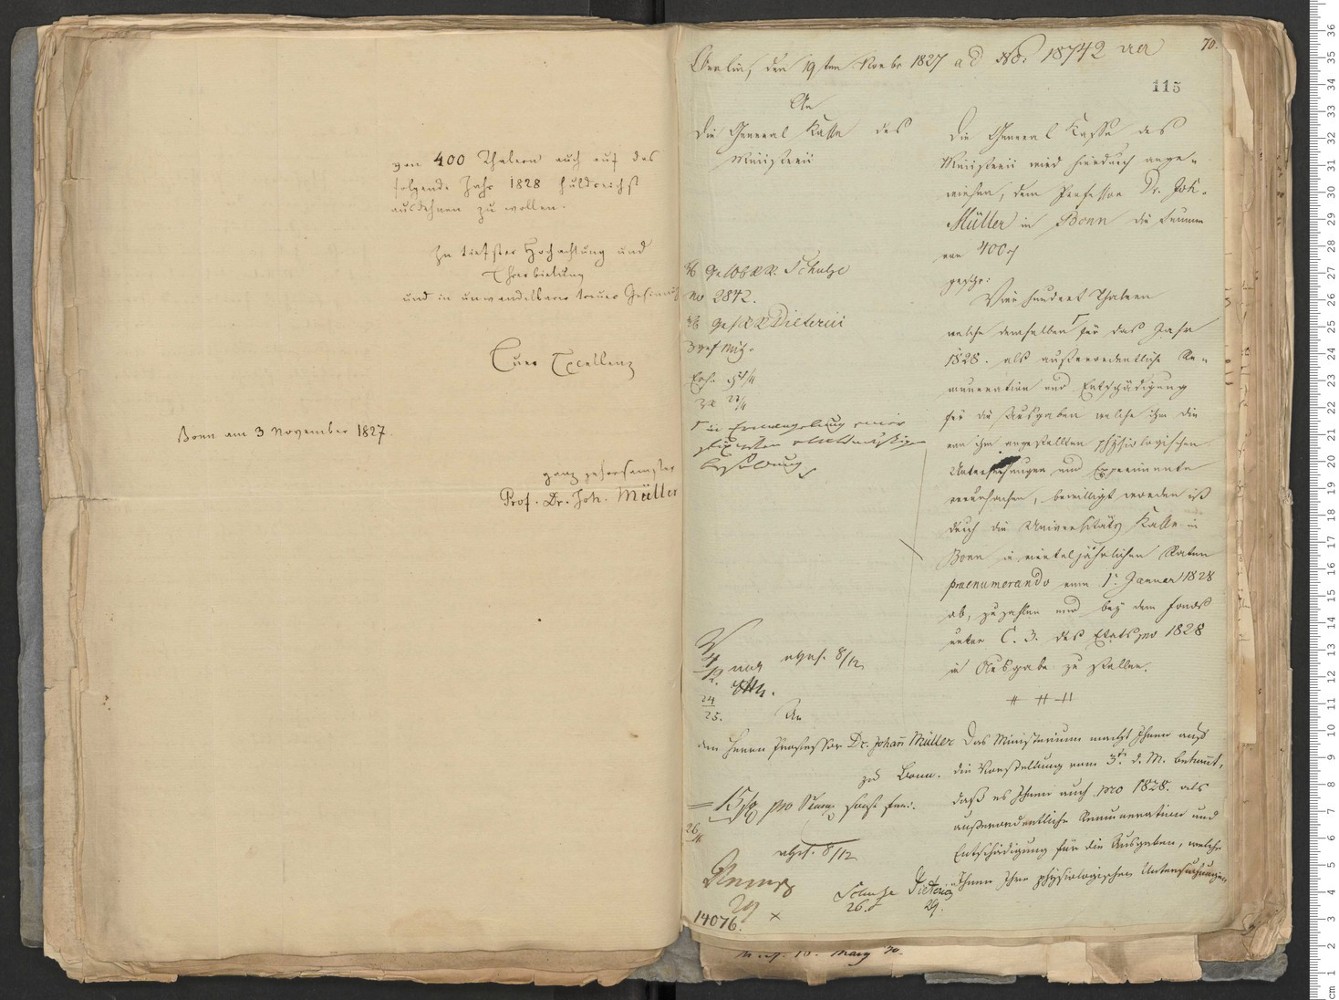 von 400 Thalern auch auf das
folgende Jahr 1828 huldreichst
ausdehnen zu wollen.
In tiefster Hochachtung und
Ehrerbietung
und in unwandelbarer treuer Gesinnung
Euer Excellenz
Bonn am 3 November 1827.
ganz gehorsamster
Prof. Dr. Joh. Müller
70.
Berlin, den 19ten Novbr 1827 ad No. 18742
115
An
die General Kasse des
Ministerii
Schulze
no 2842.
Dieterici
in Ermangelung einer
etatsmäßigen
Besoldung
Die General Kasse des
Ministerii wird hierdurch ange-
wiesen, dem Professor Dr. Joh.
Müller in Bonn die Summe
von 400
Vier hundert Thalern
welche demselben für das Jahr
1828. als außerordentliche Re-
muneration und Entschädigung
für die Ausgaben welche ihm die
von ihm angestellten physiologischen
Untersuchungen und Experimente
verursachen, bewilligt worden ist
durch die Universitäts Kasse in
Bonn in vierteljährlichen Raten
praenumerando vom 1. Januar 1828
ab, zu zahlen und bey dem Fonds
unter C. 3. des Etats pro 1828
in Ausgabe zu stellen.
8/12
24
25.
An
den Herrn Professor Dr. Johan Müller
zu Bonn.
Das Ministerium macht Ihnen auf
die Vorstellung vom 3t. d. M. bekannt,
daß es Ihnen auch pro 1828. als
außerordentliche Remuneration und
Entschädigung für die Ausgaben, welche
Ihnen Ihre physiologischen Untersuchungen
15 pro
8/12
Schulze Dieterici
26. 29.
14076.